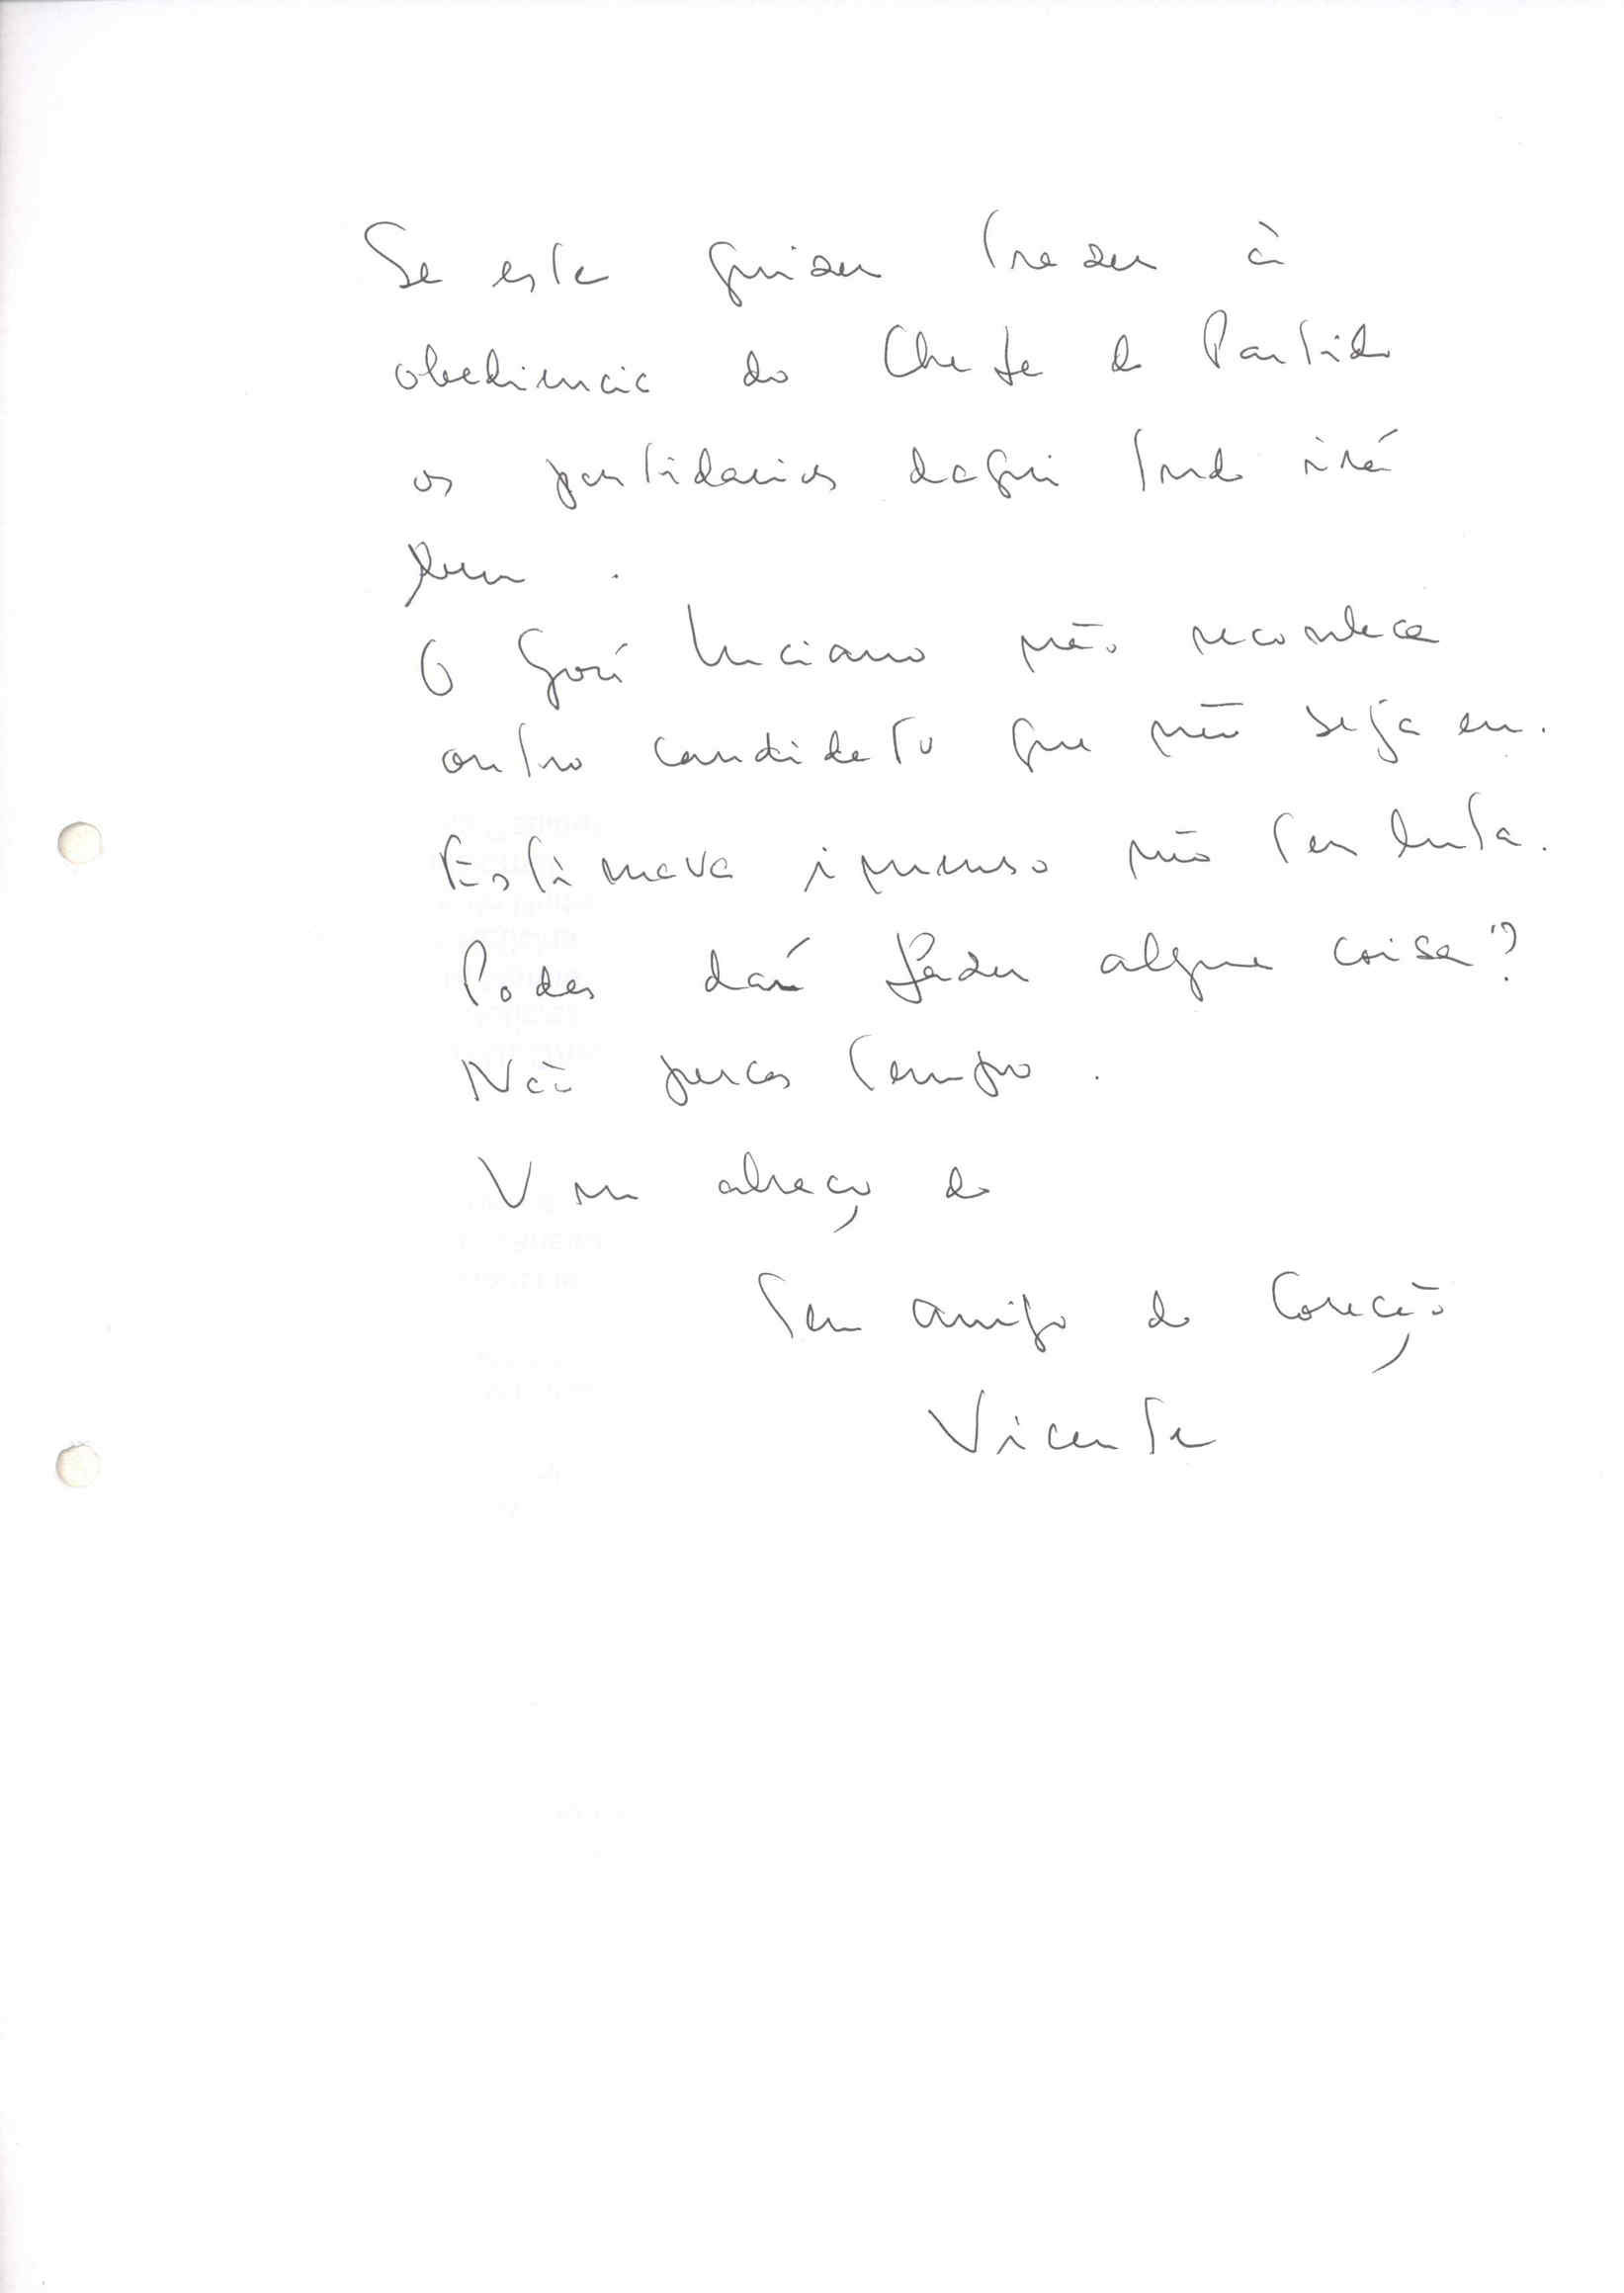 Se este quizer trazer à
obediencia do Chefe do Partido
os partidarios daqui tudo irá
bem.
O José Luciano não reconhece
outro candidato que não seja eu.
Estimava imenso não ter luta.
Podes dahi fazer alguma coisa?
Não percas tempo.
Um abraço do
Teu amigo do Coração
Vicente